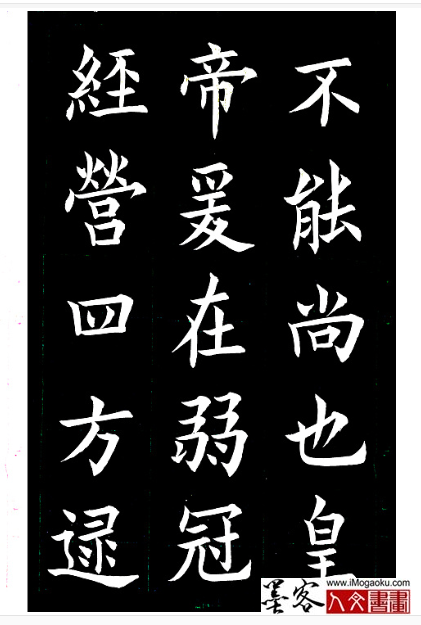 不能尚也皇
帝爰在弱冠
經營四方逮
墨客
www.iMogaoku.com
人文書畫